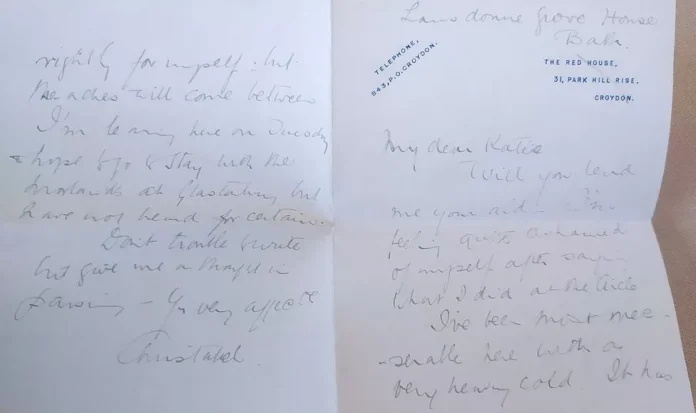 Lansdowne Grove House
Bath.
TELEPHONE,
943, P.O. CROYDON.
THE RED HOUSE,
31, PARK HILL RISE.
CROYDON.
My dear Katie
Will you lend
me your aid. I'm
feeling quite ashamed
of myself after saying
what I did at the
I've been most mee-
-serable here with a
very heavy cold. It has
rightly for myself: but
the aches will come between
I'm leaving here on Tuesday
& hope to go to stay with the
at Glastonbury but
have not heard for certain.
Don't trouble to write
but give me a thought in
passing - Yr very affecte
Christabel.